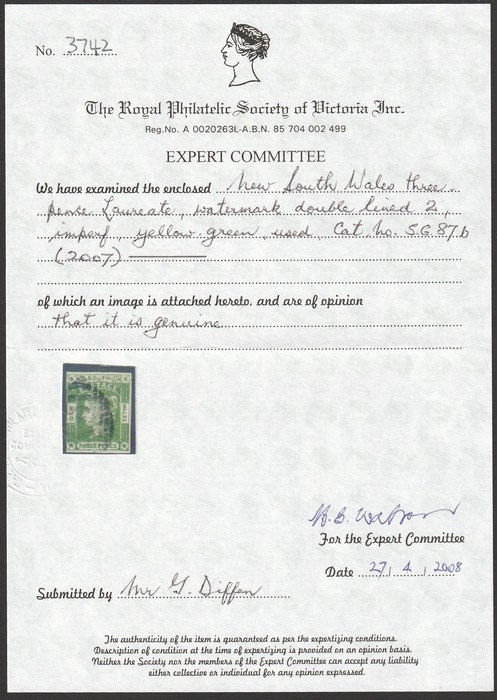 No. 3742
The Royal Philatelic Society of Victoria Inc.
Reg.No. A 0020263L-A.B.N. 85 704 002 499
EXPERT COMMITTEE
We have examined the enclosed New South Wales three
pence Laureate, watermark double lined 2,
imperf, yellow green, used, Cat. no. S.G. 87b
(2007)
of which an image is attached hereto, and are of opinion
that it is genuine
SOUTH
POSTAGE
NEW
WALES
THREE PENCE
For the Expert Committee
Date 27 / 4 / 2008
Submitted by Mr G. Diffen
The authenticity of the item is guaranteed as per the expertizing conditions.
Description of condition at the time of expertizing is provided on an opinion basis.
Neither the Society nor the members of the Expert Committee can accept any liability
either collective or individual for any opinion expressed.